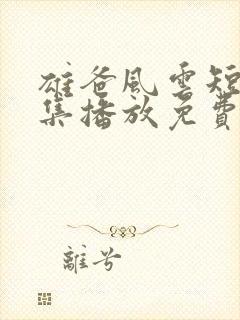 雄爸風雲短
集播放免費
離兮